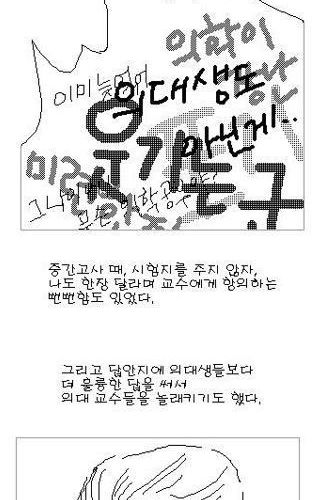 의학이
이미 늦었어
의대생도
아닌게..
웃기는구
중간고사 때, 시험지를 주지 않자,
나도 한장 달라며 교수에게 항의하는
뻔뻔함도 있었다.
그리고 답안지에 의대생들보다
더 훌륭한 답을 써서
의대 교수들을 놀래키기도 했다.